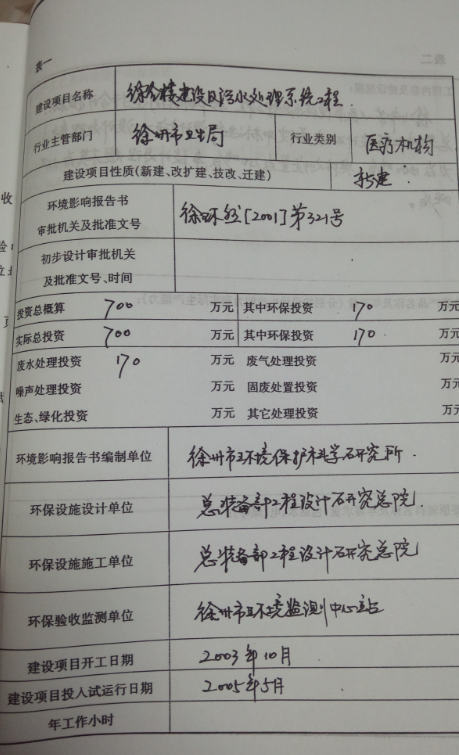 表一
建设项目名称 徐 楼建设及污水处理系统工程.
行业主管部门 徐州市卫生局 行业类别 医疗机构
建设项目性质(新建、改扩建、技改、迁建) 新建.
环境影响报告书
审批机关及批准文号 徐环 [2001]第321号
初步设计审批机关
及批准文号、时间
投资总概算 700 万元 其中环保投资 170 万元
实际总投资 700 万元 其中环保投资 170 万元
废水处理投资 170 万元 废气处理投资 万元
噪声处理投资 万元 固废处置投资 万元
生态、绿化投资 万元 其它处理投资 万元
环境影响报告书编制单位 徐州市环境保护科学研究所.
环保设施设计单位 总装备部工程设计研究总院.
环保设施施工单位 总装备部工程设计研究总院
环保验收监测单位 徐州市环境监测中心站
建设项目开工日期 2003年10月
建设项目投入试运行日期 2005年5月
年工作小时